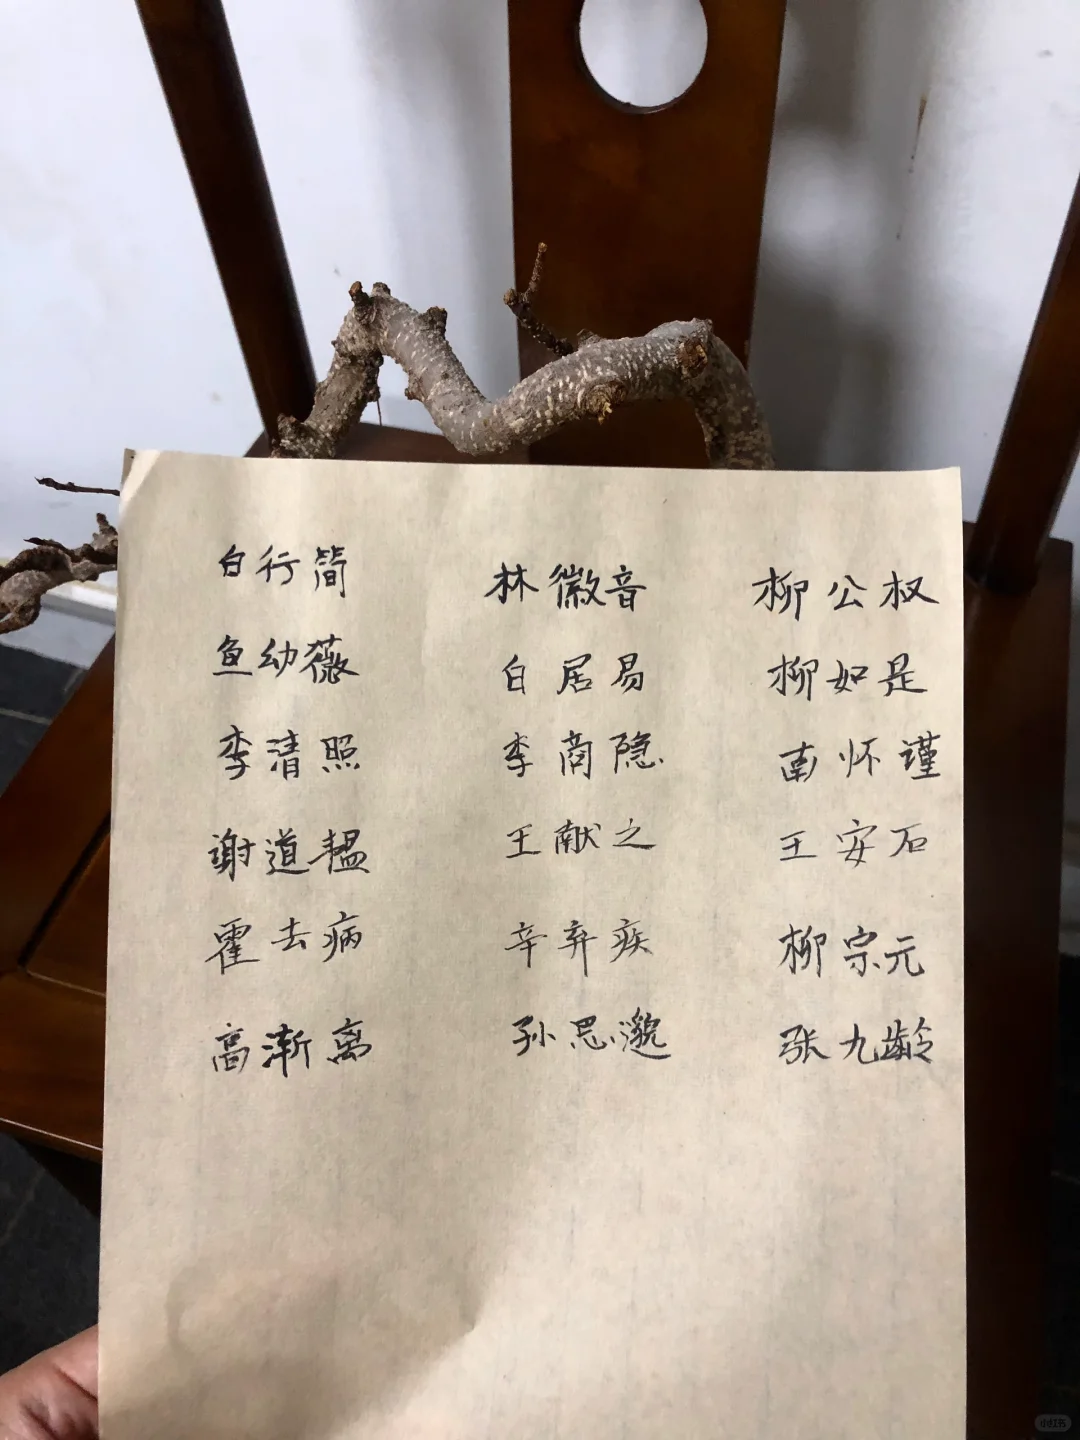 白行简 林徽音 柳公权
鱼幼薇 白居易 柳如是
李清照 李商隐 南怀谨
谢道韫 王献之 王安石
霍去病 辛弃疾 柳宗元
高渐离 孙思邈 张九龄
小红书